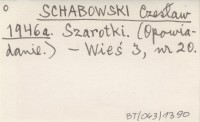 SCHABOWSKI Czesław
1946a. Szarotki. (Opowia-
danie.) – Wieś 3, nr 20.
BT/043/1390